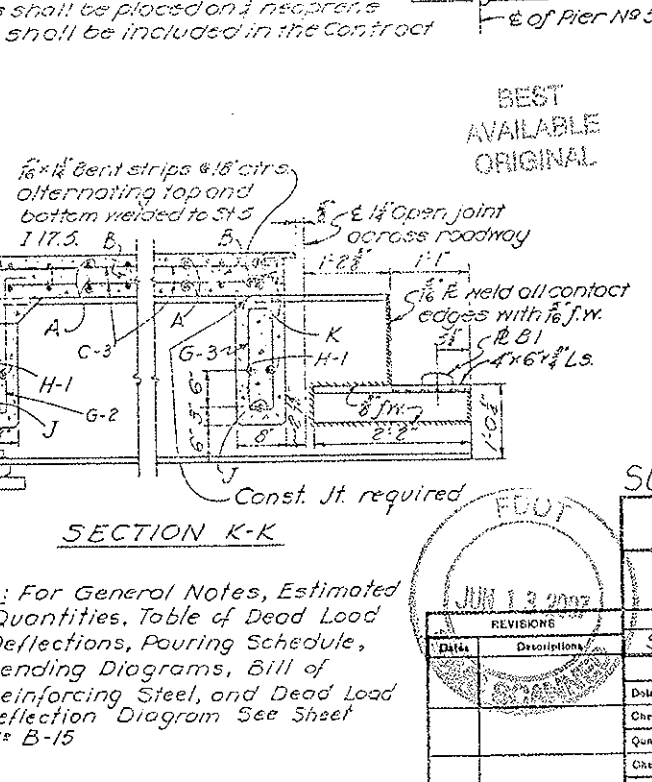 s shall be placed on neoprene
shall be included in the Contract
℄ of Pier Nº 5
BEST
AVAILABLE
ORIGINAL
Bent strips @ 18" ctrs.
alternating top and
bottom welded to St 5
I 17.5.
B
B
℄ 1¼" Open joint
across roadway
1'-1"
weld all contact
edges with 5/16 f.w.
B1
A
C-3
A
G-3
K
H-1
H-1
G-2
J
J
6" 3" 6"
8"
f.w.
2'-2"
Const. Jt. required
SECTION K-K
: For General Notes, Estimated
Quantities, Table of Dead Load
Deflections, Pouring Schedule,
ending Diagrams, Bill of
einforcing Steel, and Dead Load
eflection Diagram See Sheet
B-15
FDOT
JUN 13
REVISIONS
Dates
Descriptions